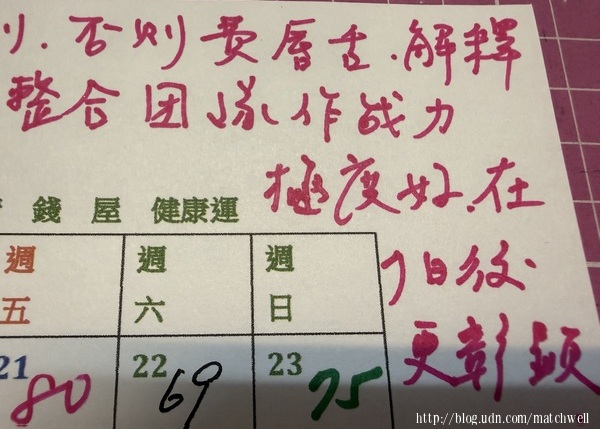 否則費唇舌.解釋
整合团隊作战力
極度好.在
錢 屋 健康運
日後
更彰顯
週 週 週
五 六 日
21 22 23
80 69 75
http://blog.udn.com/matchwell